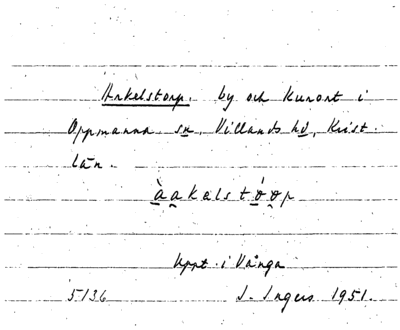 Arkelstorp. by och kurort i
Oppmanna sn, Villands hd, Krist.
län.
àa̭kəlstóo̭p
Uppt. i Vånga
5136 I. Ingers 1951.